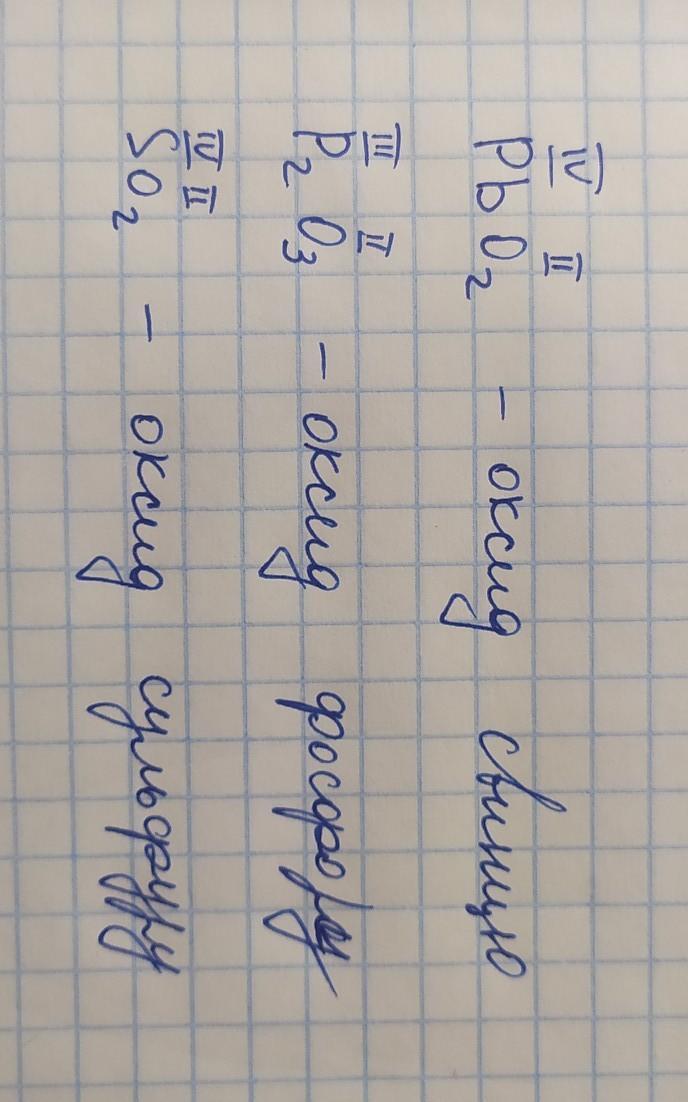 IV II
PbO₂ - оксид свинцю
III II
P₂O₃ - оксид фосфору
IV II
SO₂ - оксид сульфуру